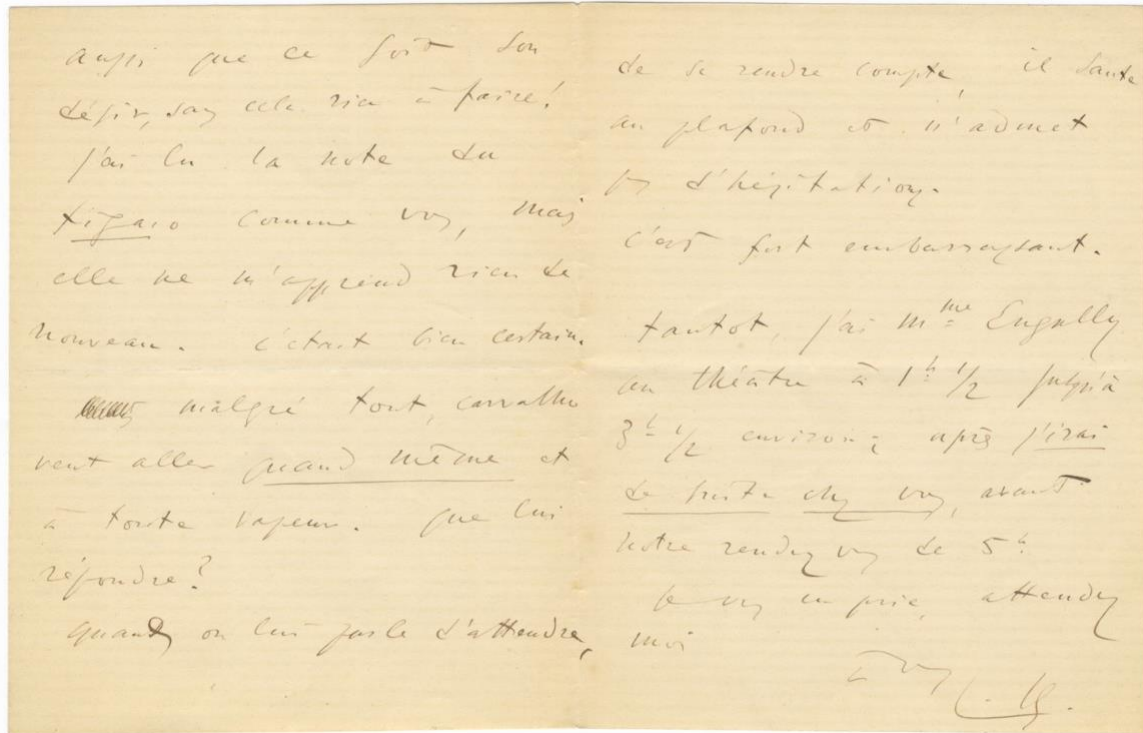 aussi que ce soit son
désir, sans cela rien à faire!
j'ai lu la note du
Figaro comme vous, mais
elle ne m'apprend rien de
nouveau. c'était bien certain.
malgré tout, carvalho
veut aller quand même et
à toute vapeur. que lui
répondre?
quand on lui parle d'attendre,
de se rendre compte, il saute
au plafond et n'admet
pas d'hésitations.
c'est fort embarrassant.
tantot, j'ai Mme Engally
au théâtre à 1h 1/2 jusqu'à
3h 1/2 environ; après j'irai
de suite chez vous, avant
notre rendez vous de 5h.
je vous en prie, attendez
moi
à vous